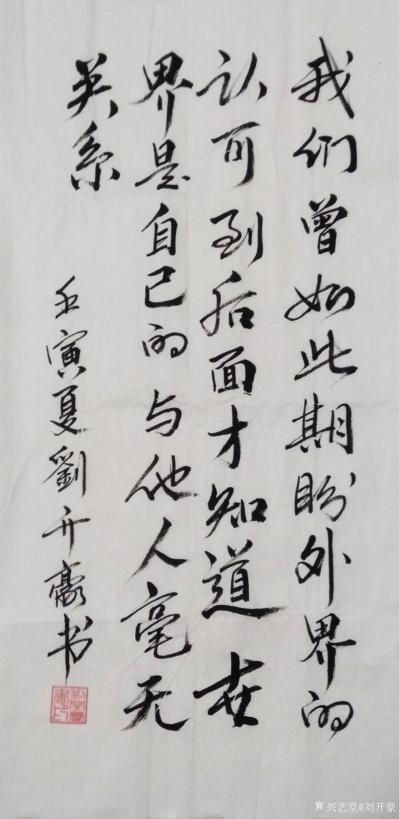 我们曾如此期盼外界的
认可到后面才知道世
界是自己的与他人毫无
关系
壬寅夏劉开豪书
兴艺堂@刘开豪